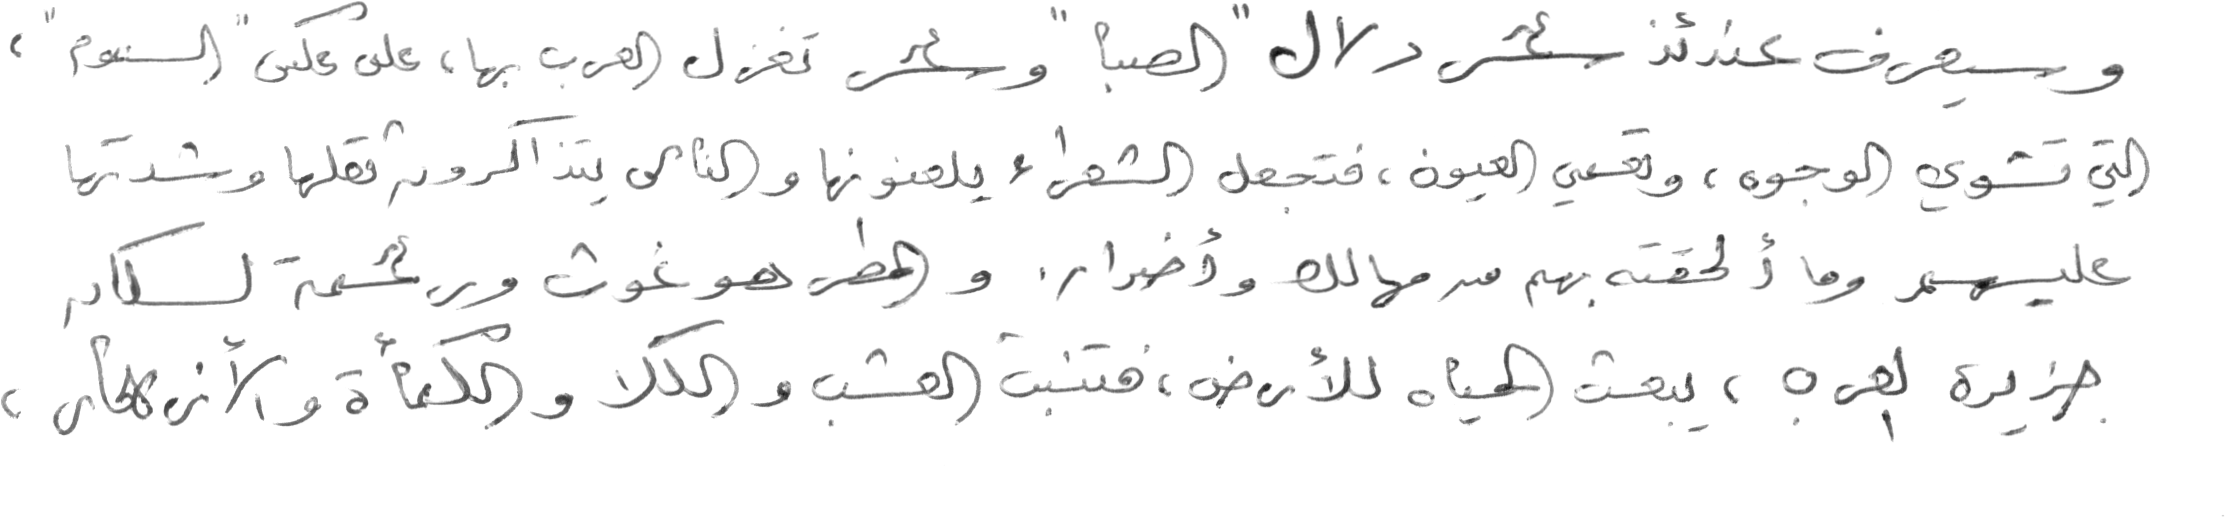 وسيعرف عندئذ سحر دلال "الصبا" وسحر تغزل العرب بها، على عكس "السموم"،
التي تشوي الوجوه، وتعمي العيون، فتجعل الشعراء يلعنونها والناس يتذاكرون ثقلها وشدتها
عليهم وما ألحقته بهم من مهالك وأضرار. والمطر هو غوث ورحمة لسكان
جزيرة العرب، يبعث الحياه للأرض، فتنبت العشب والكلا والكمأة والأزهار،